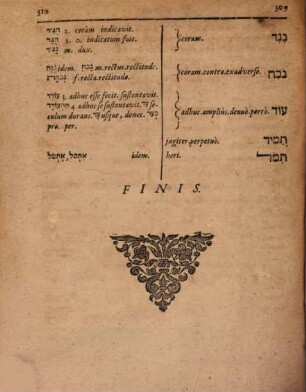 310 309
הִגִּיד 2. coràm indicavit.
הֻגַּד 3. 0. indicatum fuit.
נָגִיד m. dux.
coram.
נֶגֶד
idem. m. rectum. rectitudo.
f. recta. rectitudo.
coram. contra. ex adverso.
נֹכַח
2. adhuc esse fecit. sustentavit.
4. adhuc se sustentavit. עַד se-
culum durans. עַד usque, donec.
pro. per.
adhuc. amplius. denuò. porrò.
עוֹד
jugiter. perpetuò.
תָּמִיד
אֶתְמֹל, אֶתְמוּל idem.
heri.
FINIS.